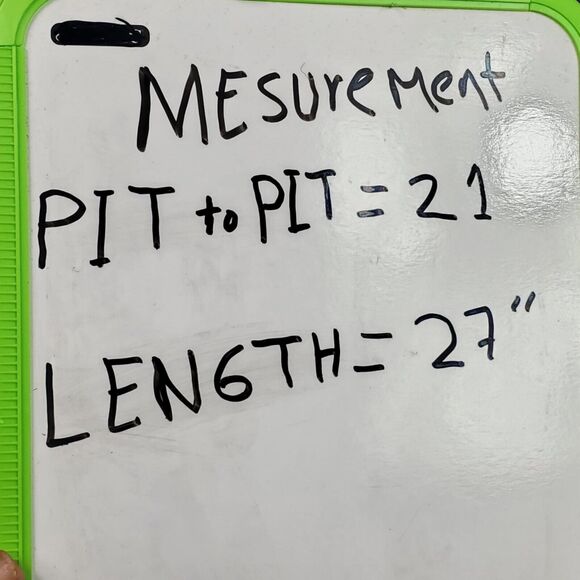 MEsurement
PIT to PIT = 21
LENGTH = 27"